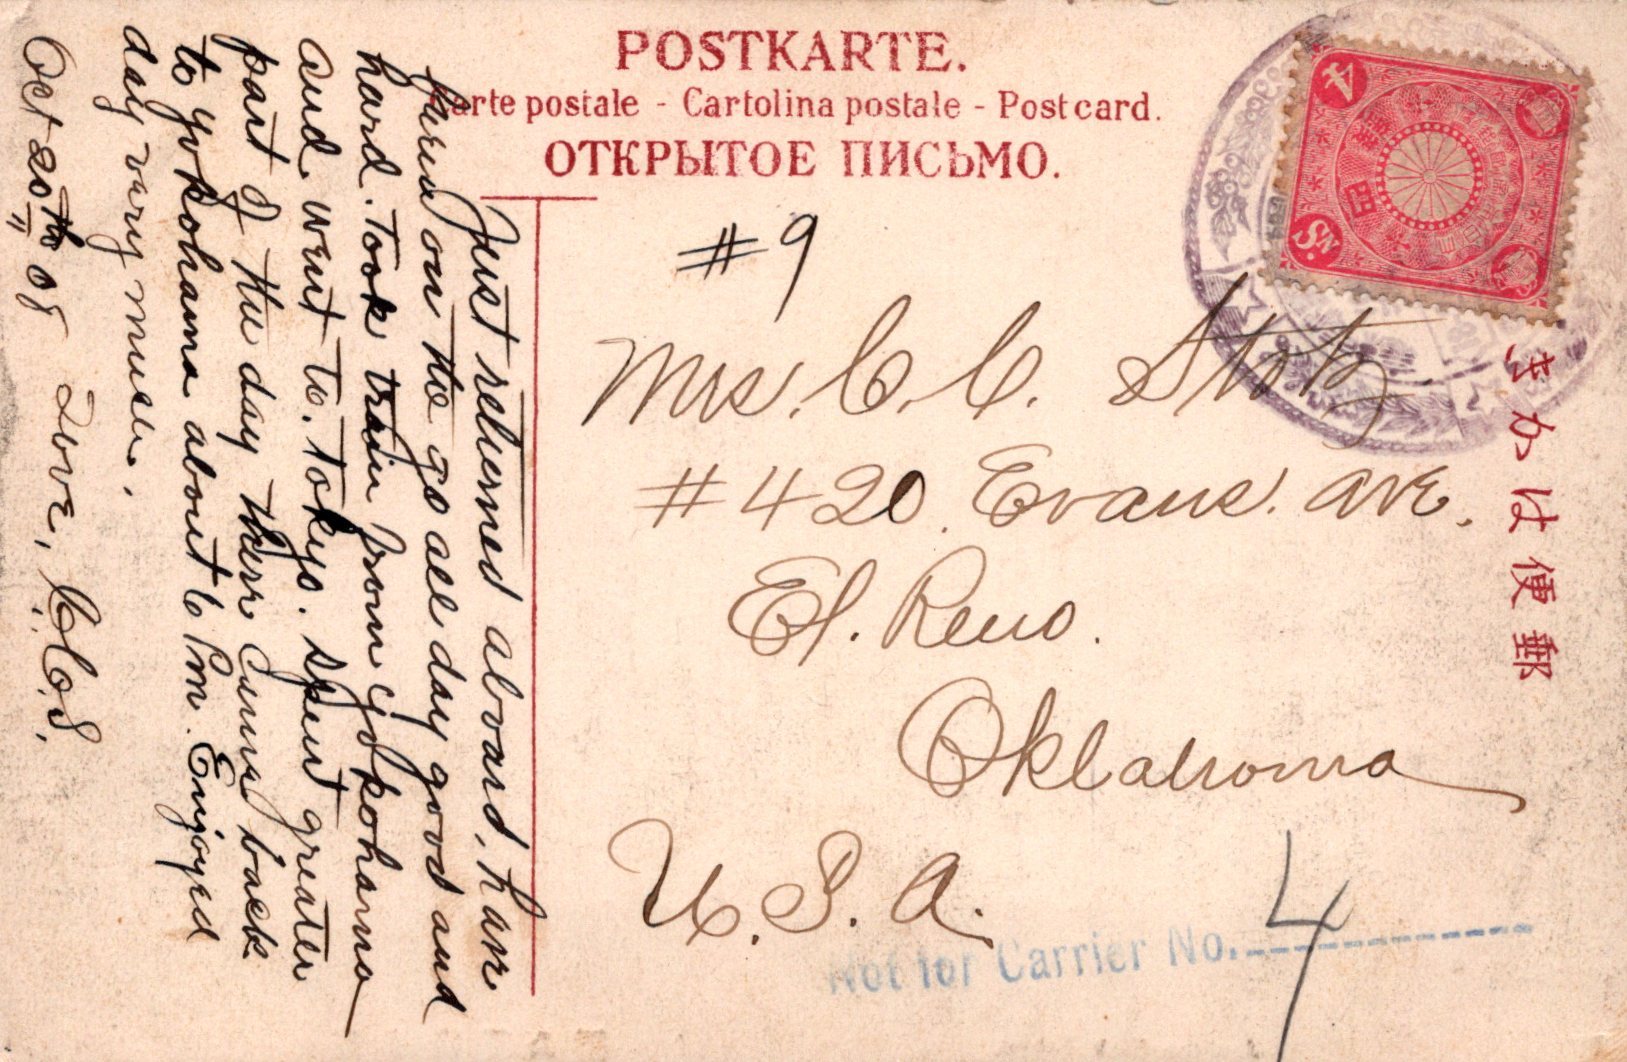 POSTKARTE.
Carte postale - Cartolina postale - Post card.
ОТКРЫТОЕ ПИСЬМО.
郵便はかき
4
Sn.
#9
Mrs. C. C. Stotz
#420. Evans. Ave.
El. Reno.
Oklahoma
U. S. A.
Not for Carrier No.
4
Just returned aboard, have
been on the go all day good and
hard. Took train from Yokohama
and went to. Tokyo. Spent greater
part of the day there came back
to Yokohama about 6 Pm. Enjoyed
day very much.
Oct 20th 08 Love, C. C. S.